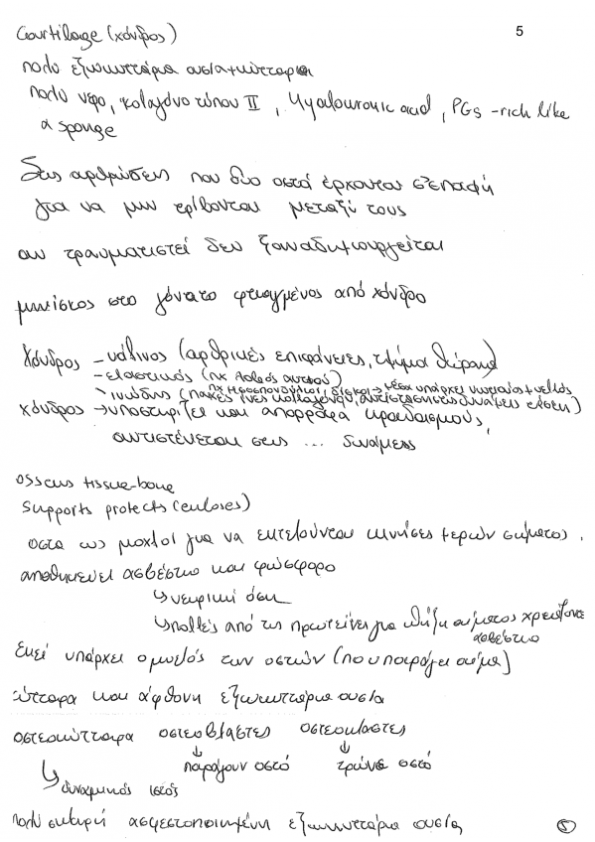 5
Cartilage (χόνδρος)
πολύ εξωκυττάρια ουσία+κύτταρα
πολύ νερό, κολαγόνο τύπου II, Hyalouronic acid, PGs -rich like
a sponge
Στις αρθρώσεις που δύο οστά έρχονται σ'επαφή
για να μην τρίβονται μεταξύ τους
αν τραυματιστεί δεν ξαναδημιουργείται
μηνίσκος στο γόνατο φτιαγμένος από χόνδρο
Χόνδρος - υάλινος (αρθρικές επιφάνειες, τμήμα θώρακα)
- ελαστικός (πχ λοβός αυτιού)
πχ μεσοσπονδύλιοι δίσκοι → μέσα υπάρχει νωτιαίος μυελός
- ινώδης (παχιές ίνες κολλαγόνου, αντίσταση στις δυνάμεις έλξης)
χόνδρος → υποστηρίζει και απορροφά κραδασμούς,
αντιστέκεται στις ... δυνάμεις
osseus tissue-bone
supports protects (encloses)
οστά ως μοχλοί για να εκτελούνται κινήσεις μερών σώματος.
αποθηκεύει ασβέστιο και φώσφορο
↳ νευρική ώση
↳ πολλές από τις πρωτεΐνες για πήξη αίματος χρειάζονται
ασβέστιο
Εκεί υπάρχει ο μυελός των οστών (που παράγει αίμα)
κύτταρα και άφθονη εξωκυττάρια ουσία
οστεοκύτταρα οστεοβλάστες οστεοκλάστες
↓ ↓
παράγουν οστό τρώνε οστό
↳ δυναμικός ιστός
πολύ σκληρή ασβεστοποιημένη εξωκυττάρια ουσία
5